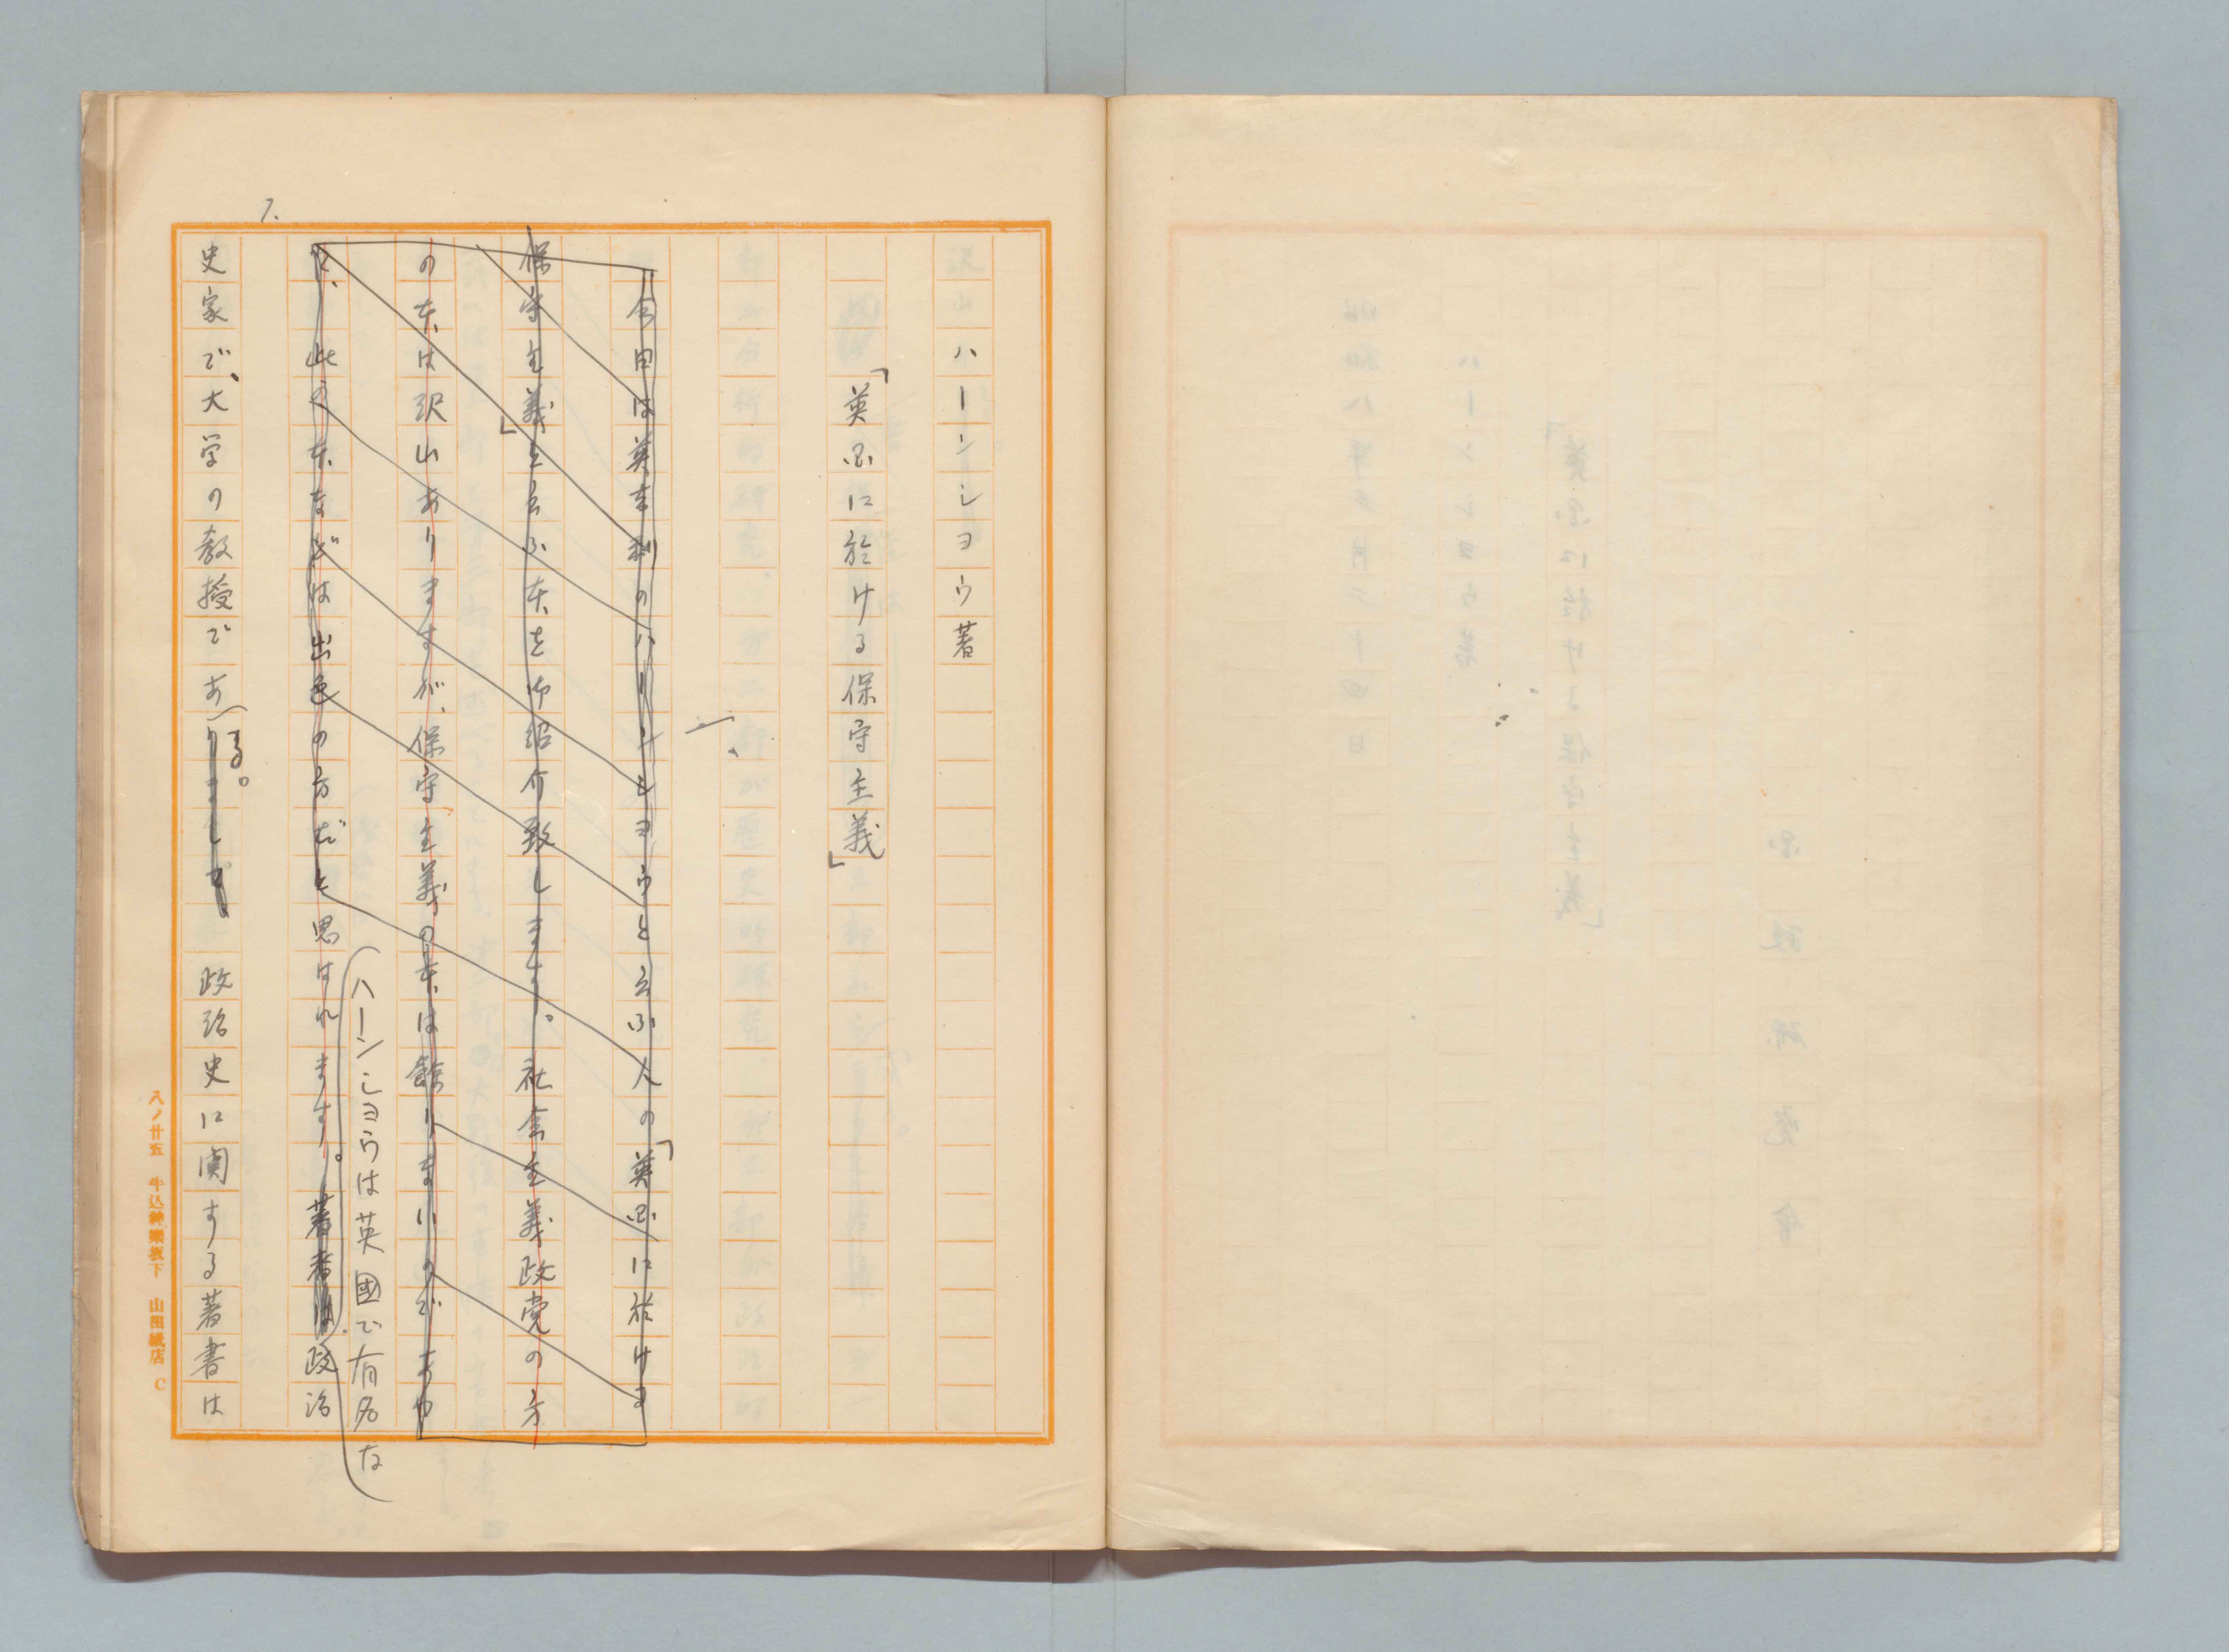 ハーンシヨウ著
「英国に於ける保守主義」
一、
今日は英吉利のハーンシヨウと云ふ人の「英国に於ける
保守主義」と云ふ本を御紹介致します。社会主義政党の方
の本は沢山ありますが、保守主義の本は餘りないのであ
此の本などは出色の方だと思はれます。著者は政治
ハーンシヨウは英國で有名な
史家で、大学の教授でありました 政治史に関する著書は
る。
7.
八ノ廿五 牛込神樂坂下 山田紙店 C